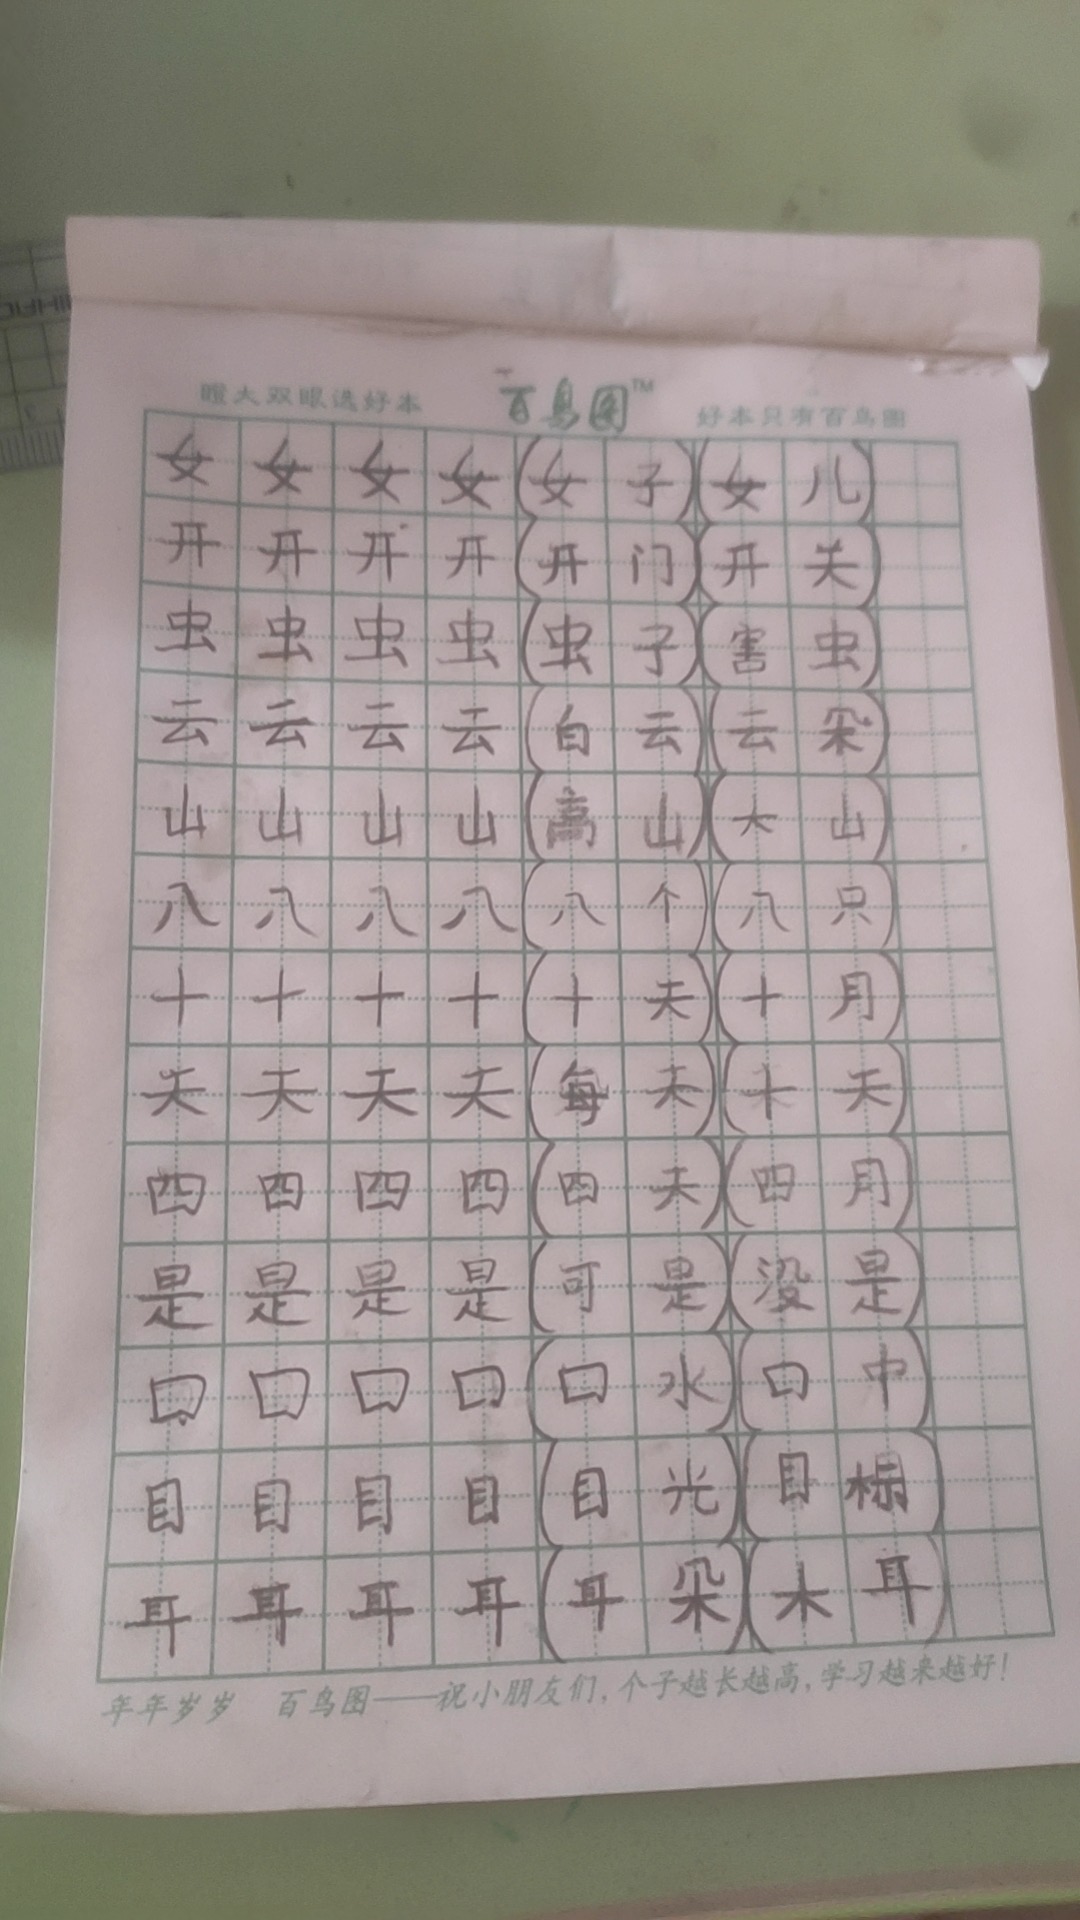 瞪大双眼选好本 百鸟图™ 好本只有百鸟图
女女女女(女子)(女儿)
开开开开(开门)(开关)
虫虫虫虫(虫子)(害虫)
云云云云(白云)(云朵)
山山山山(高山)(大山)
八八八八(八个)(八只)
十十十十(十天)(十月)
天天天天(每天)(十天)
四四四四(四天)(四月)
是是是是(可是)(没是)
口口口口(口水)(口中)
目目目目(目光)(目标)
耳耳耳耳(耳朵)(木耳)
年年岁岁 百鸟图——祝小朋友们,个子越长越高,学习越来越好!